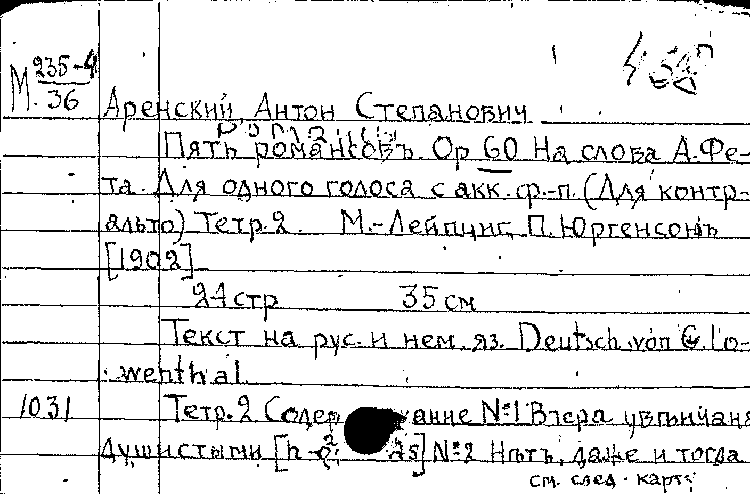 М 235-4
36
Аренский, Антон Степанович
Пять романсовъ. Ор 60 На слова А. Фе-
та. Для одного голоса с акк. ф.-п. (Для контр-
альто) Тетр. 2 М.-Лейпциг, П. Юргенсонъ
[1902]
24 стр 35 см
Текст на рус. и нем. яз. Deutsch von
wenthal
1031 Тетр. 2 Содер ание №1 Вчера увѣнчана
душистыми №2 Нѣтъ, даже и тогда
см. след. карт.